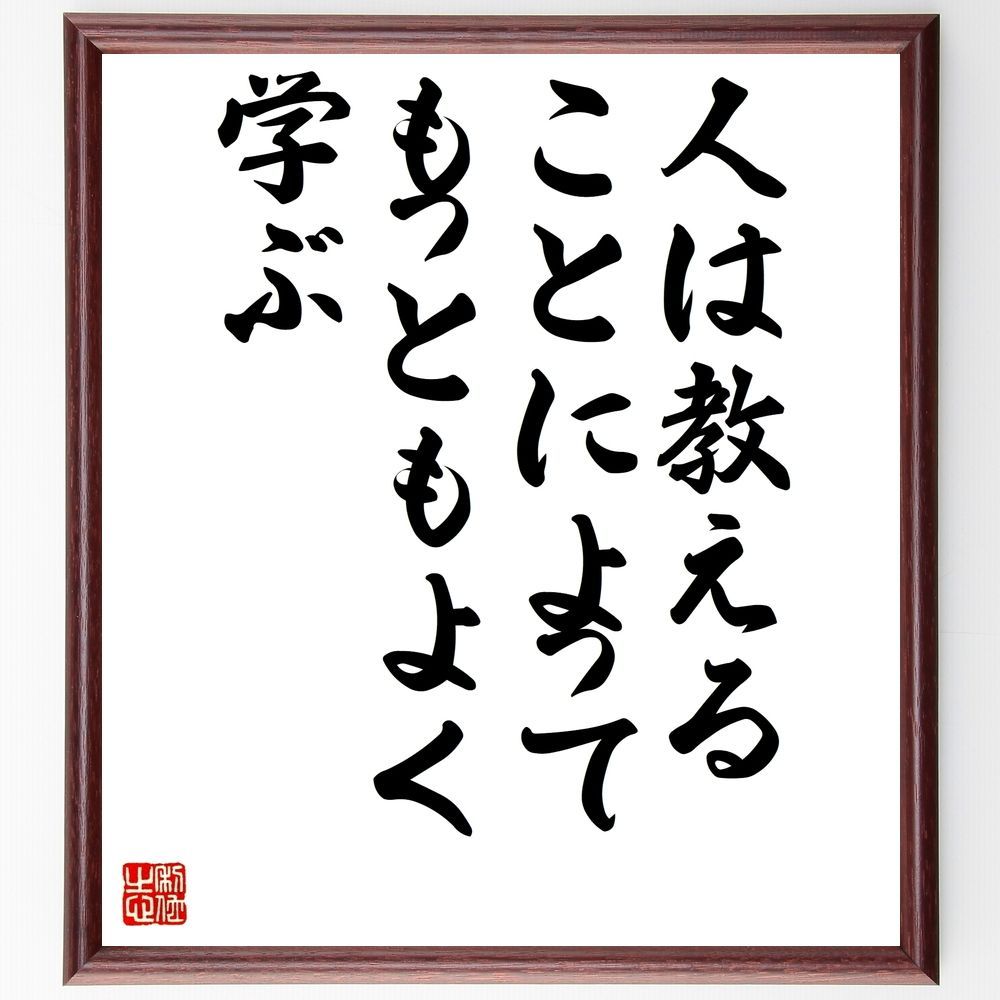 人は教える
ことによって
もっともよく
学ぶ